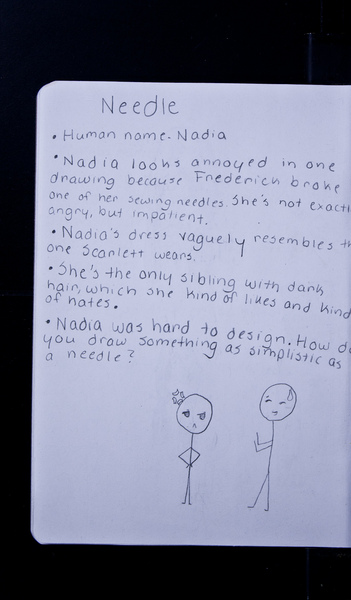 Needle
• Human name- Nadia
• Nadia looks annoyed in one
drawing because Frederick broke
one of her sewing needles. She's not exactl
angry, but impatient.
• Nadia's dress vaguely resembles th
one Scarlett wears.
• She's the only sibling with dark
hair, which she kind of likes and kind
of hates.
• Nadia was hard to design. How do
you draw something as simplistic as
a needle?